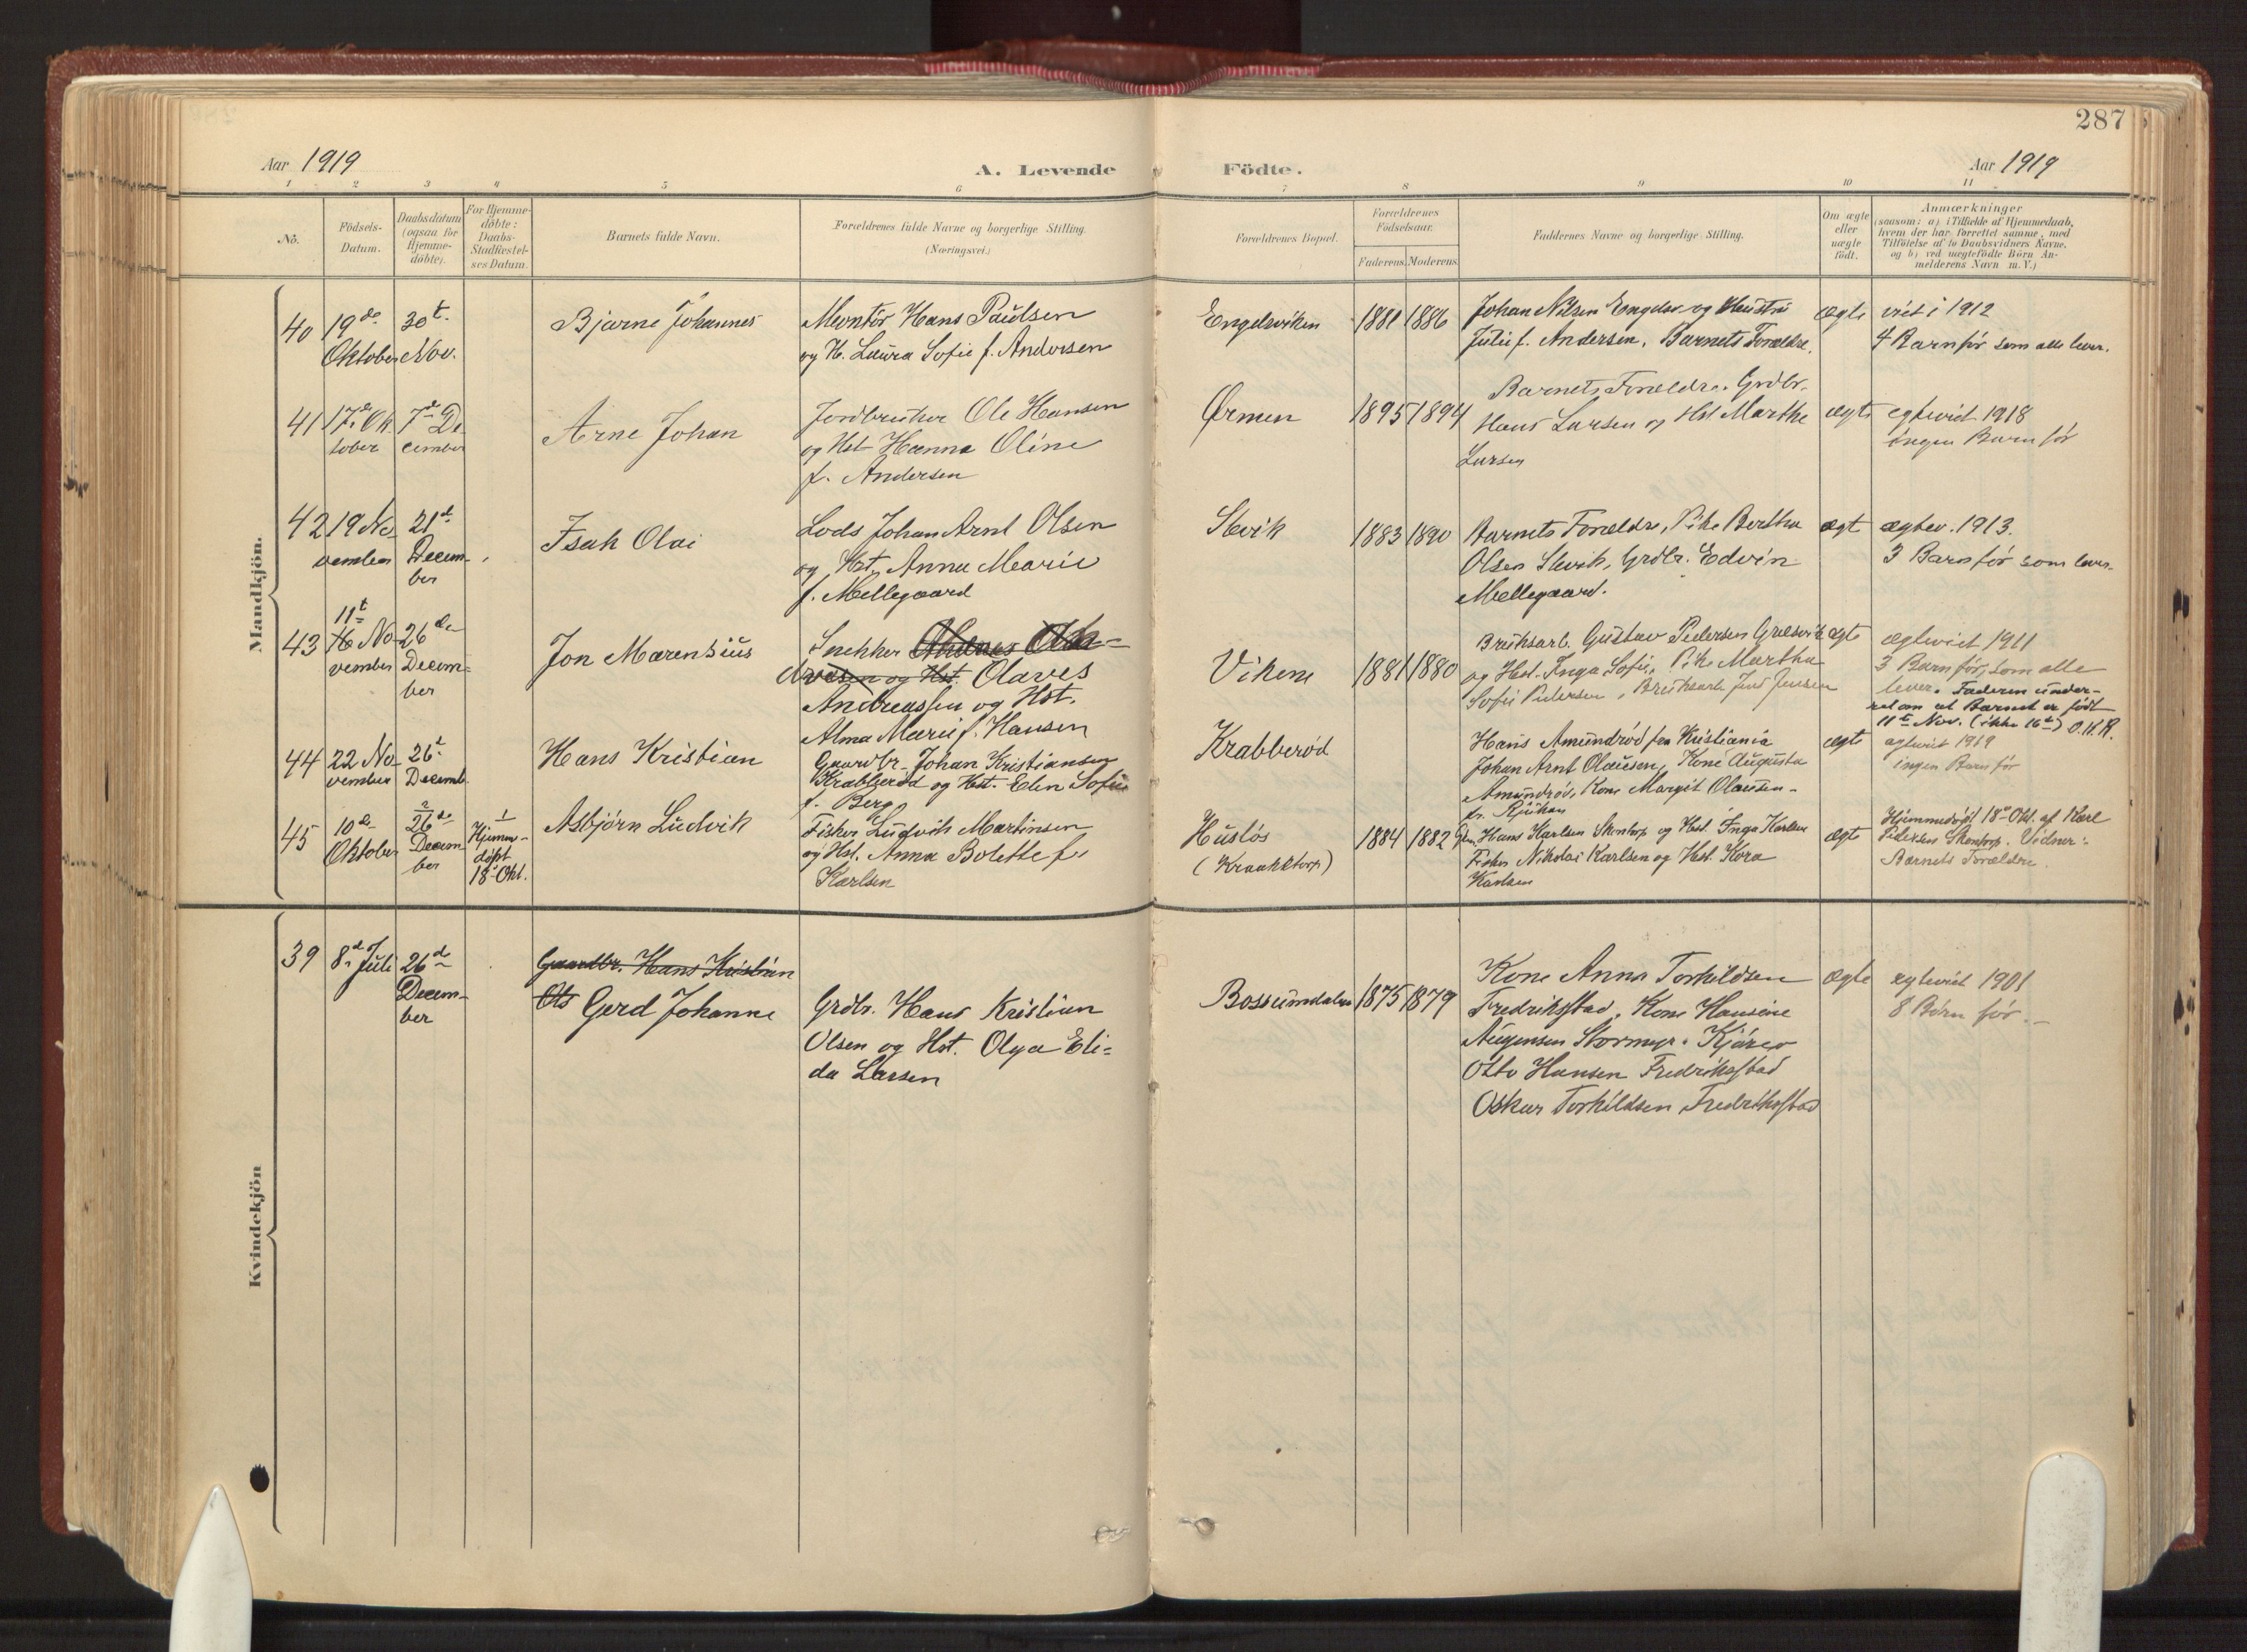 287
Aar 1919
A. Levende
Födte.
Aar 1919
1 2 3 4 5 6 7 8 9 10 11
Nö.
Födsels-
Datum.
Daabsdatum
(ogsaa for
Hjemme-
döbte).
For Hjemme-
döbte:
Daabs-
Stadfæstel-
ses Datum.
Barnets fulde Navn.
Forældrenes fulde Navne og borgerlige Stilling.
(Næringsvei.)
Forældrenes Bopæl.
Forældrenes
Födselsaar.
Faderens. Moderens.
Faddernes Navne og borgerlige Stilling.
Om ægte
eller
uægte
födt.
Anmærkninger
(saasom: a) i Tilfælde af Hjemmedaab,
hvem der har forrettet samme, med
Tilföielse af to Daabsvidners Navne,
og b) ved uægtefödte Börn An-
melderens Navn m. V.)
Mandkjön.
40
19de
Oktober
30t.
Nov.
Bjarne Johannes
Montör Hans Paulsen
og H. Laura Sofie f. Andersen
Engelsviken
1881 1886
Johan Nilsen Engelsv og Hustru
Julie f. Andersen, Barnets Forældre.
ægte
viet i 1912
4 Barn för som alle lever.
41
17de Ok
tober
7de De
cember
Arne Johan
Jordbruker Ole Hansen
og Hst Hanna Oline
f. Andersen
Ørmen
1895 1894
Barnets Forældre. Grdbr.
Hans Larsen og Hst Marthe
Larsen
ægte
egteviet 1918
ingen Barn för
42
19 No
vember
21de
Decem-
ber
Isak Olai
Lods Johan Arnt Olsen
og Hst. Anna Marie
f. Mellegaard
Slevik
1883 1890
Barnets Forældre, Pike Bertha
Olsen Slevik, Grdbr. Edvin
Mellegaard.
ægt
ægtev. 1913.
3 Barn för som lever.
43
11t
16 No-
vember
26de
Decem-
ber
Jon Marensius
Snekker
og Hst. Olaves
Andreassen og Hst.
Alma Marie f. Hansen
Vikene
1881 1880
Bruksarb. Gustav Pedersen Gresvik
og Hst. Inga Sofie, Pike Martha
Sofie Pedersen, Bruksarb Jens Jensen
ægte
ægteviet 1911
3 Barn för, som alle
lever. Faderen under-
ret om at Barnet er födt
11te Nov. (ikke 16de) O.H.R.
44
22 No-
vember
26t.
Decemb.
Hans Kristian
Gaardbr. Johan Kristiansen
Krabberød og Hst. Elen Sofie
f. Berg
Krabberød
Hans Amundrød fra Kristiania
Johan Arnt Olausen, Kone Augusta
Amundrød, Kone Margit Olausen-
fr. Rjukan
ægte
egteviet 1919
ingen Barn för
45
10de
Oktober
26de
Decem
ber
1
Hjemme-
döpt
18 Okt.
Asbjørn Ludvik
Fisker Ludvik Martinsen
og Hst. Anna Bolette f.
Karlsen
Huslös
(Kraakktorp)
1884 1882
Hans Karlsen Skontorp og Hst. Inga Karlsen
Fisker Nikolai Karlsen og Hst. Kora
Karlsen
ægte
Hjemmedøpt 18de Okt. af Karl
Pedersen Skontorp. Vidner:
Barnets Forældre.
Kvindekjön
39
8de Juli
26de
Decem-
ber
Gaardbr. Hans Kristian
Ols Gerd Johanne
Grdbr. Hans Kristian
Olsen og Hst. Olga Eli=
da Larsen
Bossumdalen
1875 1879
Kone Anna Torkildsen
Fredriksstad, Kone Hansine
Stormyr. Kjøreo
Otto Hansen Fredriksstad
Oskar Torkildsen Fredriksstad
ægte
egteviet 1901
8 Börn för.-